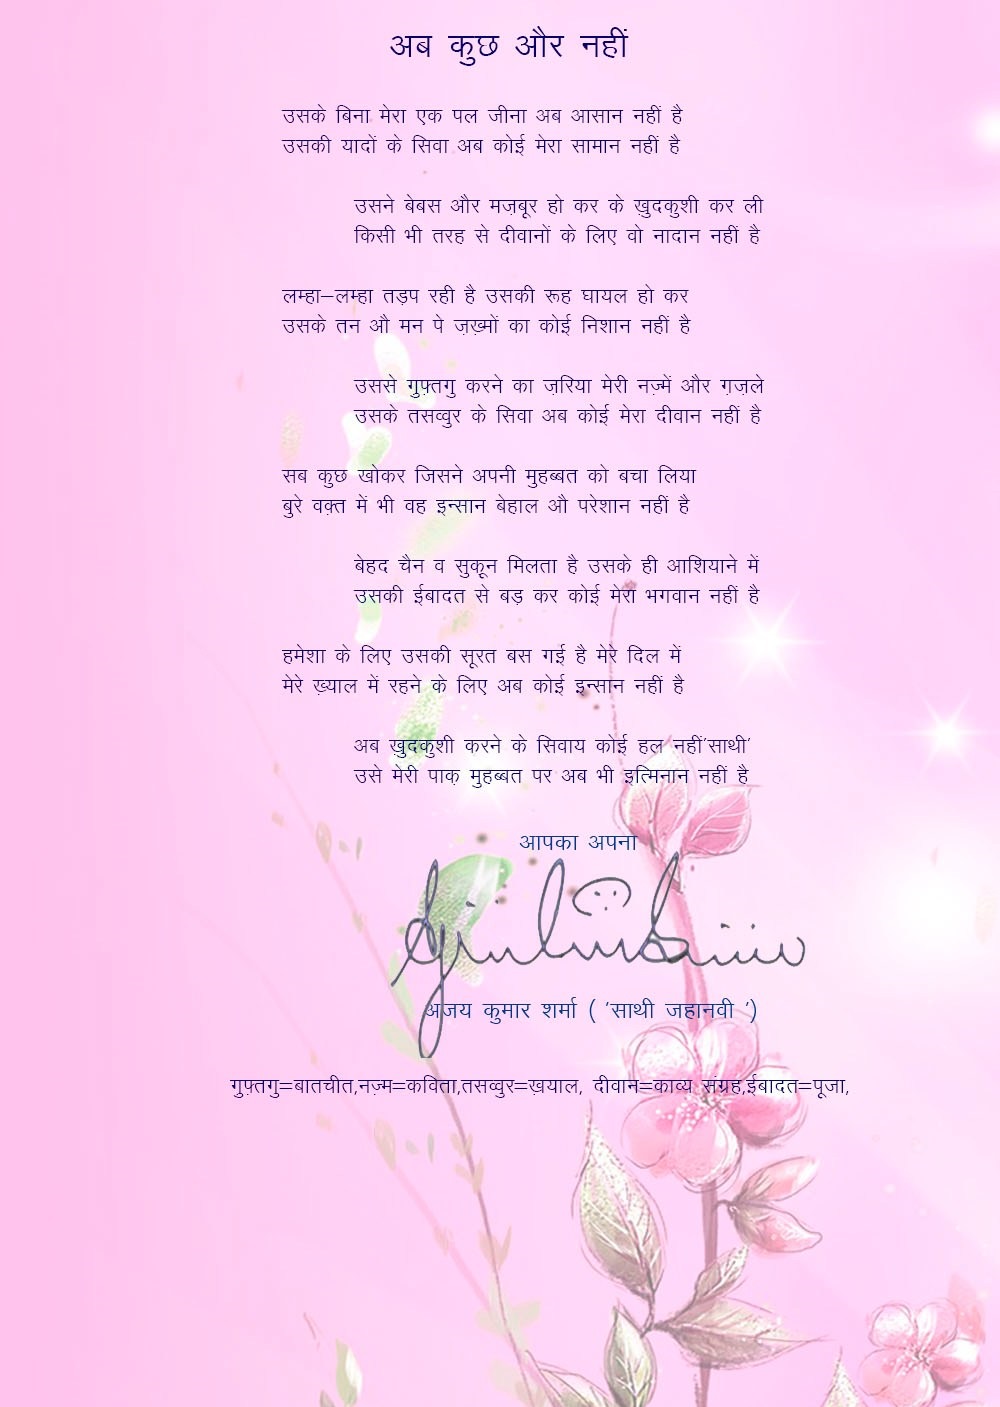 अब कुछ और नहीं
उसके बिना मेरा एक पल जीना अब आसान नहीं है
उसकी यादों के सिवा अब कोई मेरा सामान नहीं है
उसने बेबस और मज़बूर हो कर के ख़ुदकुशी कर ली
किसी भी तरह से दीवानों के लिए वो नादान नहीं है
लम्हा–लम्हा तड़प रही है उसकी रूह घायल हो कर
उसके तन औ मन पे ज़ख़्मों का कोई निशान नहीं है
उससे गुफ़्तगु करने का ज़रिया मेरी नज़्में और ग़ज़ले
उसके तसव्वुर के सिवा अब कोई मेरा दीवान नहीं है
सब कुछ खोकर जिसने अपनी मुहब्बत को बचा लिया
बुरे वक़्त में भी वह इन्सान बेहाल औ परेशान नहीं है
बेहद चैन व सुकून मिलता है उसके ही आशियाने में
उसकी ईबादत से बड़ कर कोई मेरा भगवान नहीं है
हमेशा के लिए उसकी सूरत बस गई है मेरे दिल में
मेरे ख़्याल में रहने के लिए अब कोई इन्सान नहीं है
अब ख़ुदकुशी करने के सिवाय कोई हल नहीं'साथी'
उसे मेरी पाक़ मुहब्बत पर अब भी इत्मिनान नहीं है
आपका अपना
अजय कुमार शर्मा ( 'साथी जहानवी ')
गुफ़्तगु=बातचीत,नज़्म=कविता,तसव्वुर=ख़याल, दीवान=काव्य संग्रह,ईबादत=पूजा,